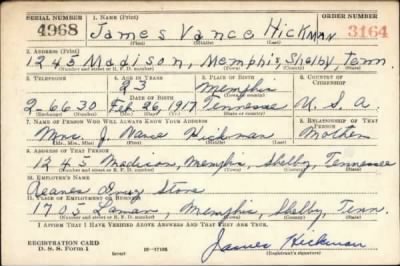 SERIAL NUMBER 1. NAME (Print) ORDER NUMBER
4968 James Vance Hickman 3164
(First) (Middle) (Last)
2. ADDRESS (Print)
1245 Madison, Memphis, Shelby Tenn.
(Number and street or R. F. D. number) (Town) (County) (State)
3. TELEPHONE 4. AGE IN YEARS 5. PLACE OF BIRTH 6. COUNTRY OF CITIZENSHIP
23 Memphis
DATE OF BIRTH (Town or county)
2-6630 Feb 26, 1917 Tennessee U. S. A.
(Exchange) (Number) (Mo.) (Day) (Yr.) (State or country)
7. NAME OF PERSON WHO WILL ALWAYS KNOW YOUR ADDRESS 8. RELATIONSHIP OF THAT PERSON
Mrs. J. Vance Hickman Mother
(Mr., Mrs., Miss) (First) (Middle) (Last)
9. ADDRESS OF THAT PERSON
1245 Madison, Memphis, Shelby, Tennessee
(Number and street or R. F. D. number) (Town) (County) (State)
10. EMPLOYER'S NAME
Drug Store
11. PLACE OF EMPLOYMENT OR BUSINESS
1705 Lamar, Memphis, Shelby, Tenn.
(Number and street or R. F. D. number) (Town) (County) (State)
I AFFIRM THAT I HAVE VERIFIED ABOVE ANSWERS AND THAT THEY ARE TRUE.
REGISTRATION CARD James Hickman
D. S. S. Form 1 (Registrant's signature)